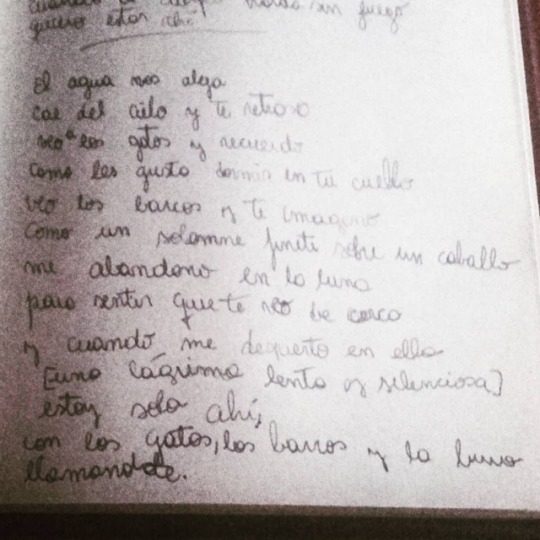 cuando sin fuego
quiero estar ahí
El agua nos aleja
cae del cielo y te retraso
veo a los gatos y recuerdo
como les gusta dormir en tu cuello
veo los barcos y te imagino
como un solemne jinete sobre un caballo
me abandono en la luna
para sentir que te veo de cerca
y cuando me despierto en ella
[una lágrima lenta y silenciosa]
estoy sola ahí,
con los gatos, los barcos y la luna
llamandote.